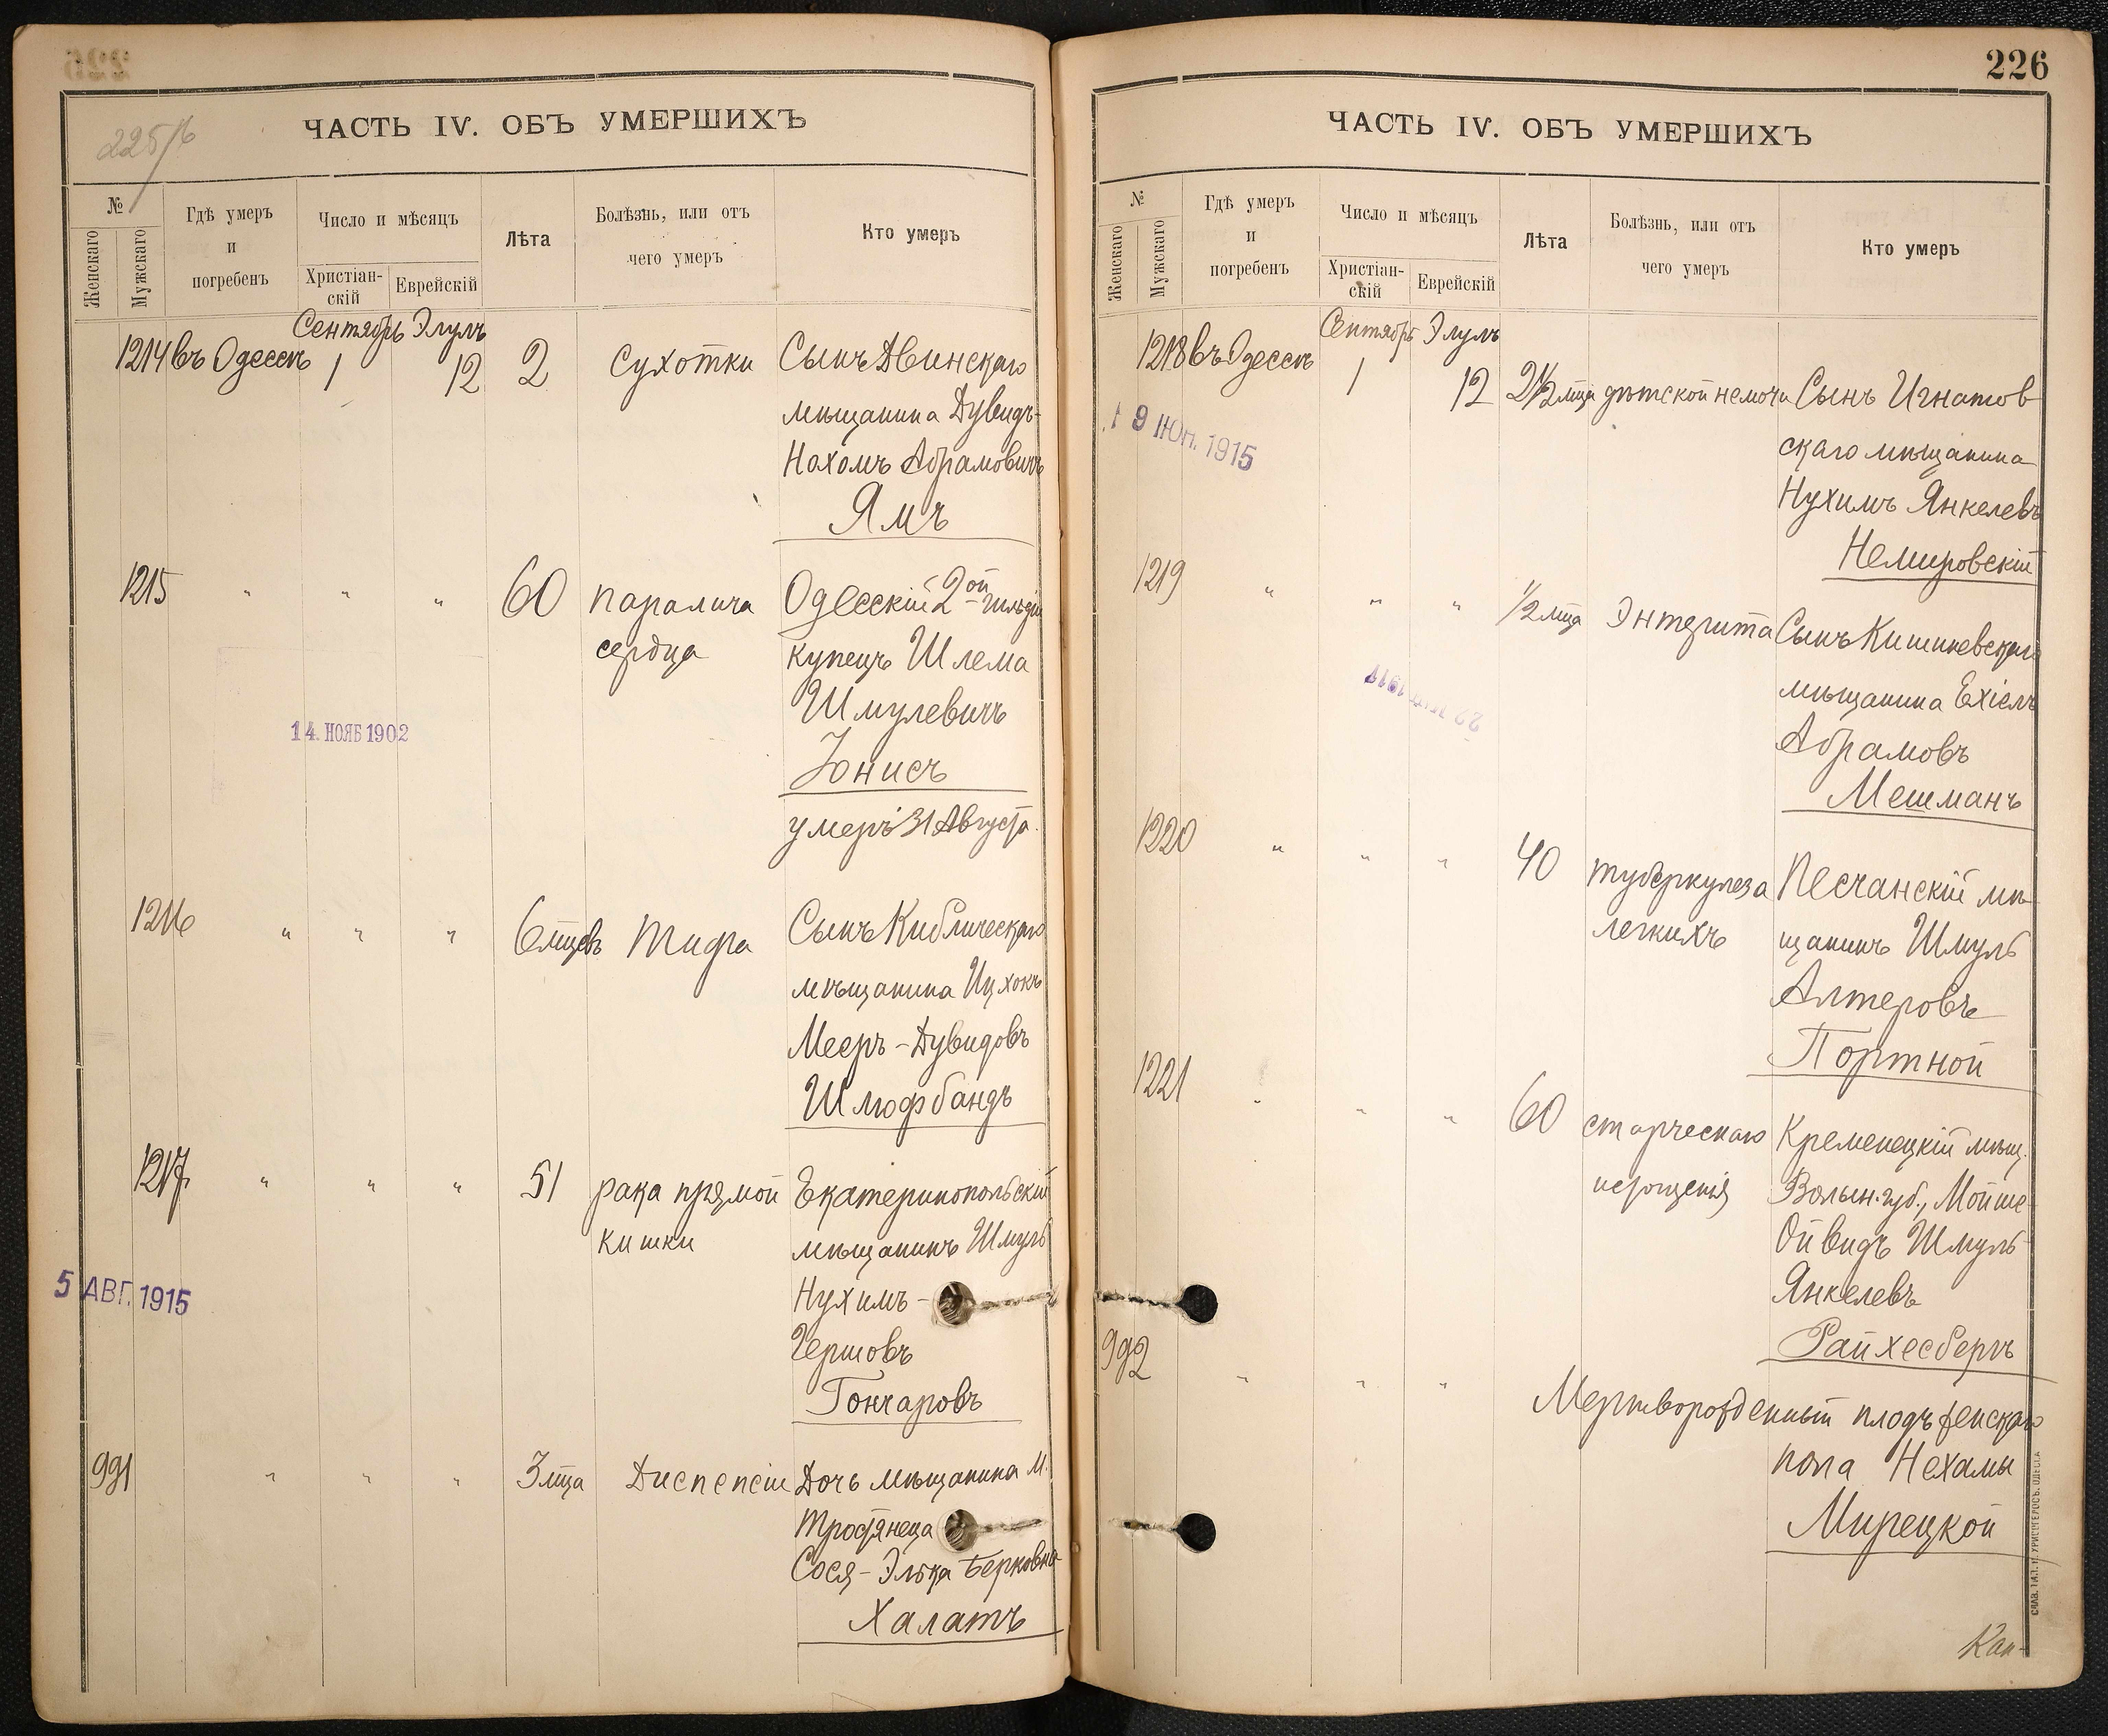 225/б
ЧАСТЬ IV. ОБЪ УМЕРШИХЪ
№
Женскаго
Мужскаго
Гдѣ умеръ
и
погребенъ
Число и мѣсяцъ
Христіан-
скій
Еврейскій
Лѣта
Болѣзнь, или отъ
чего умеръ
Кто умеръ
Сентябрь Элулъ
1214 въ Одессѣ 1 12 2 Сухотки Сынъ Двинскаго
мѣщанина Дувидъ-
Нахомъ Абрамовичъ
Ямъ
1215 " " " 60 паралича Одесскій 2ой гильдіи
сердца купецъ Шлема
Шмулевичъ
14. НОЯБ 1902
Юнисъ
умеръ 31 Августа.
1216 " " " 6 мцевъ Тифа Сынъ Кибличскаго
мѣщанина Ицхокъ
Мееръ-Дувидовъ
Шлюфбандъ
1217 " " " 51 рака прямой Екатеринопольскій
кишки мѣщанинъ Шмуль
5 АВГ. 1915
Нухимъ-
Гершовъ
Гончаровъ
991 " " " 3 мца Диспепсіи Дочь мѣщанина м.
Тростянеца
Сося-Элька Берковна
Халатъ
226
ЧАСТЬ IV. ОБЪ УМЕРШИХЪ
№
Женскаго
Мужскаго
Гдѣ умеръ
и
погребенъ
Число и мѣсяцъ
Христіан-
скій
Еврейскій
Лѣта
Болѣзнь, или отъ
чего умеръ
Кто умеръ
Сентябрь Элулъ
1218 въ Одессѣ 1 12 2½ мца дѣтской немочи Сынъ Игнатов
19 ІЮН. 1915
скаго мѣщанина
Нухимъ Янкелевъ
Немировскій
1219 " " " ½ мца Энтерита Сынъ Кишиневскаго
мѣщанина Ехіель
Абрамовъ
Мешманъ
1220 " " " 40 туберкулеза Песчанскій мѣ-
легкихъ щанинъ Шмуль
Алтеровъ
Портной
1221 " " " 60 старческаго Кременецкій мѣщ.
истощенія Волын. губ., Мойше
Ойвидъ Шмуль
Янкелевъ
Райхесбергъ
992 " " "
Мертворожденный плодъ женскаго
пола Нехамы
Мирецкой
Кан-